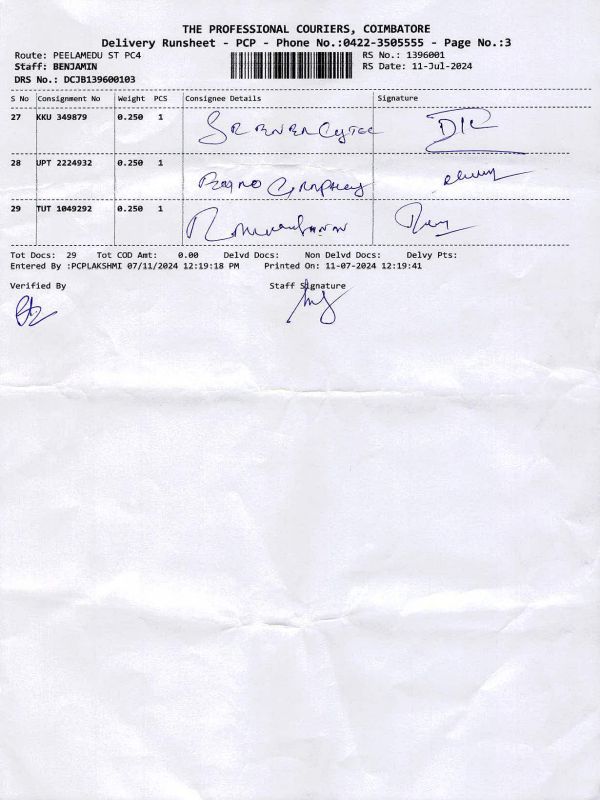 THE PROFESSIONAL COURIERS, COIMBATORE
Delivery Runsheet - PCP - Phone No.:0422-3505555 - Page No.:3
Route: PEELAMEDU ST PC4 RS No.: 1396001
Staff: BENJAMIN RS Date: 11-Jul-2024
DRS No.: DCJB139600103
S No Consignment No Weight PCS Consignee Details Signature
27 KKU 349879 0.250 1
28 UPT 2224932 0.250 1
29 TUT 1049292 0.250 1
Tot Docs: 29 Tot COD Amt: 0.00 Delvd Docs: Non Delvd Docs: Delvy Pts:
Entered By :PCPLAKSHMI 07/11/2024 12:19:18 PM Printed On: 11-07-2024 12:19:41
Verified By Staff Signature